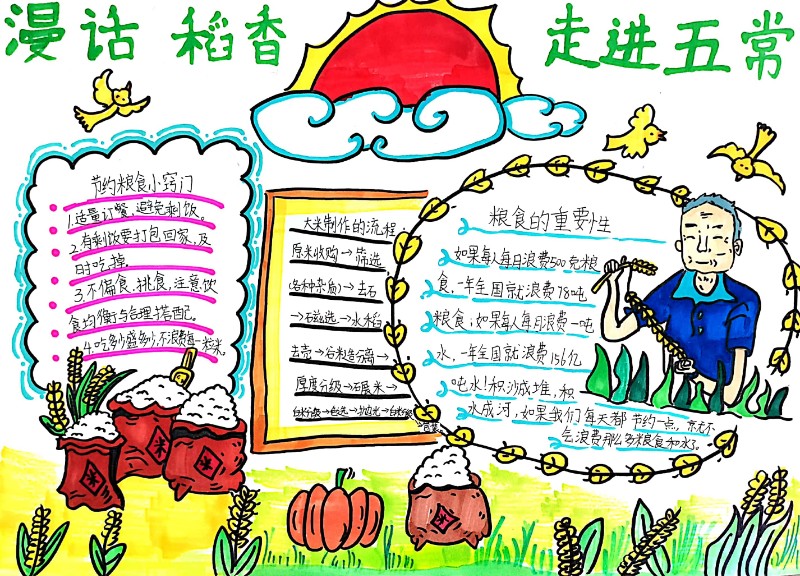 漫话 稻香 走进五常
节约粮食小窍门
1.适量订餐,避免剩饭。
2.有剩饭要打包回家,及
时吃掉
3.不偏食、挑食,注意饮
食均衡与合理搭配。
4.吃多少盛多少,不浪费每一粒米。
大米制作的流程
原米收购→筛选
(各种杂质)→去石
→石磁选→水稻
去壳→谷粒分离→
厚度分级→石展米→
白米分级→色选→抛光→白米分级
粮食的重要性
如果每人每日浪费500克粮
食,一年全国就浪费78吨
粮食;如果每人每日浪费一吨
水,一年全国就浪费156亿
吨水!积沙成堆,积
水成河,如果我们每天都节约一点,就不
会浪费那么多粮食和水了。
米
米
米
米